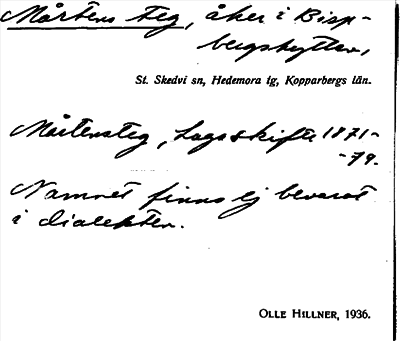 Mårtens teg, åker i Bisp-
bergshyttan,
St. Skedvi sn, Hedemora tg, Kopparbergs län.
Mårtensteg, Lagaskifte 1871-
-79.
Namnet finns ej bevarat
i dialekten.
OLLE HILLNER, 1936.